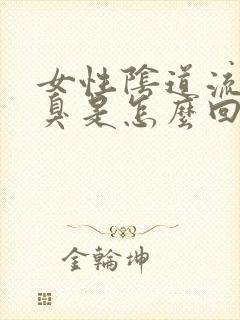 女性陰道流
臭是怎麼回
金輪坤